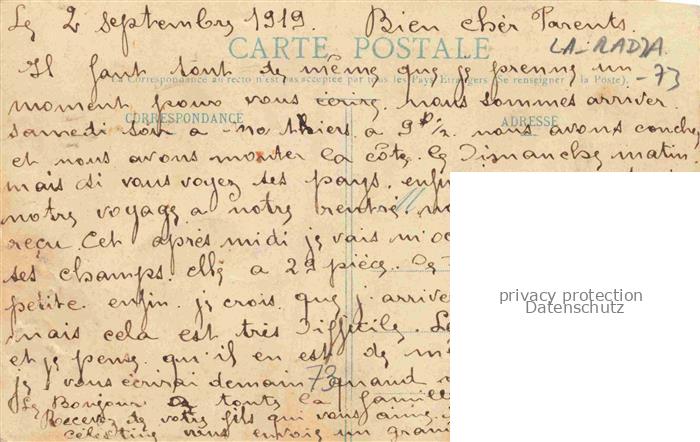 Le 2 septembre 1919. Bien cher Parents.
CARTE POSTALE
LA-RADJA
Il faut tout de même que je prenne un
-73
La Correspondance au recto n'est pas acceptée par tous les Pays Etrangers (Se renseigner à la Poste).
moment pour vous nous sommes arriver
CORRESPONDANCE
ADRESSE
samedi soir a thiers a 9h 1/2 nous avons couche
et nous avons monter la côte le Dimanche matin.
mais si vous voyez ses pays. enfin
notre voyage a notre rentre.
reçu. Cet après midi je vais m'oc
ses champs. elle a 29 pièce.
petite. enfin. je crois que j'arrive
mais cela est très difficile.
et je pense qu'il en est de m
je vous écrirai demain quand
73
Le Bonjour a toute la famille
Recevez de votre fils qui vous aime.
célestine vous envoie un gran
privacy protection
Datenschutz